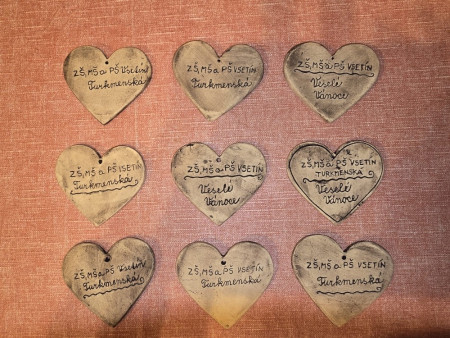 ZŠ, MŠ a PŠ Vsetín
Turkmenská
ZŠ, MŠ a PŠ VSETÍN
Turkmenská
ZŠ, MŠ a PŠ VSETÍN
Veselé
Vánoce
ZŠ, MŠ a PŠ VSETÍN
Turkmenská
ZŠ, MŠ a PŠ VSETÍN
Veselé
Vánoce
ZŠ, MŠ a PŠ VSETÍN
TURKMENSKÁ
Veselé
Vánoce
ZŠ, MŠ a PŠ Vsetín
Turkmenská
ZŠ, MŠ a PŠ VSETÍN
Turkmenská
ZŠ, MŠ a PŠ VSETÍN
Turkmenská